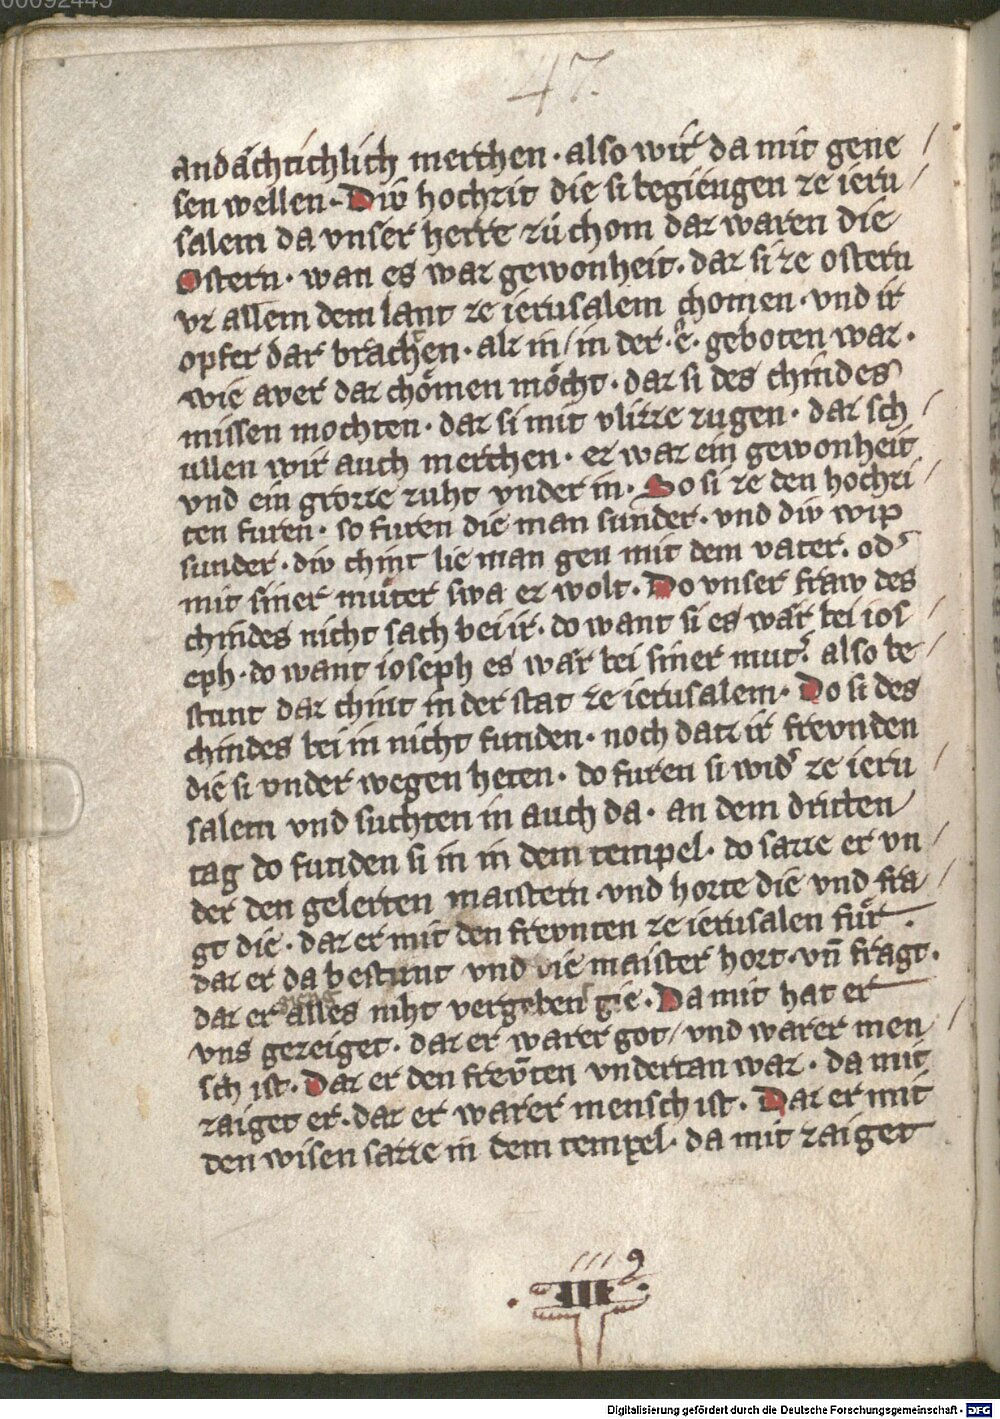 00092445
47.
andächtichlich merchen · also wir da mit gene /
sen wellen · Diw hochzit die si begiengen ze ieru /
salem da vnser herre zů chom daz waren die
Ostern · wan es waz gewonheit · daz si ze ostern
vz allem dem lant ze ierusalem chomen · vnd ir
opfer dar brachen · alz in / in der · e · geboten waz ·
wie aver daz chömen möcht · daz si des chindes
missen mochten · daz si mit vlizze zugen · daz sch /
ullen wir auch merchen · ez waz ein gewonheit
vnd ein grozze zuht vnder in · So si ze den hochzi /
ten furen · so furen die man sunder · vnd diw wip
sunder · diw chint lie man gen mit dem vater · od᾽
mit siner můter swa ez wolt · Do vnser fraw des
chindes nicht sach bei ir · do want si es wär bei ios /
eph · do want ioseph es wär bei siner mut᾽ also be /
stunt daz chint in der stat ze ierusalem · Do si des
chindes bei in nicht funden · noch datz ir frevnden
die si vnder wegen heten · do furen si wid᾽ ze ieru /
salem vnd suchten in auch da · an dem dritten
tag do funden si in in dem tempel · do sazze er vn /
der den gelerten maistern · vnd horte die vnd fra /
gt die · daz er mit den frevnten ze ierusalen fůr ·
daz er da bestunt vnd die maister hort · vn̄ fragt ·
daz er alles niht vergeben gie · Da mit hat er
vns gezeiget · daz er warer got / vnd warer men /
sch ist · Daz er den frev̄ten vndertan waz · da mit
zaiget er · daz er warer mensch ist · Daz er mit
den wisen sazze in dem tempel · da mit zaiget
· III9 ·
Digitalisierung gefördert durch die Deutsche Forschungsgemeinschaft - DFG